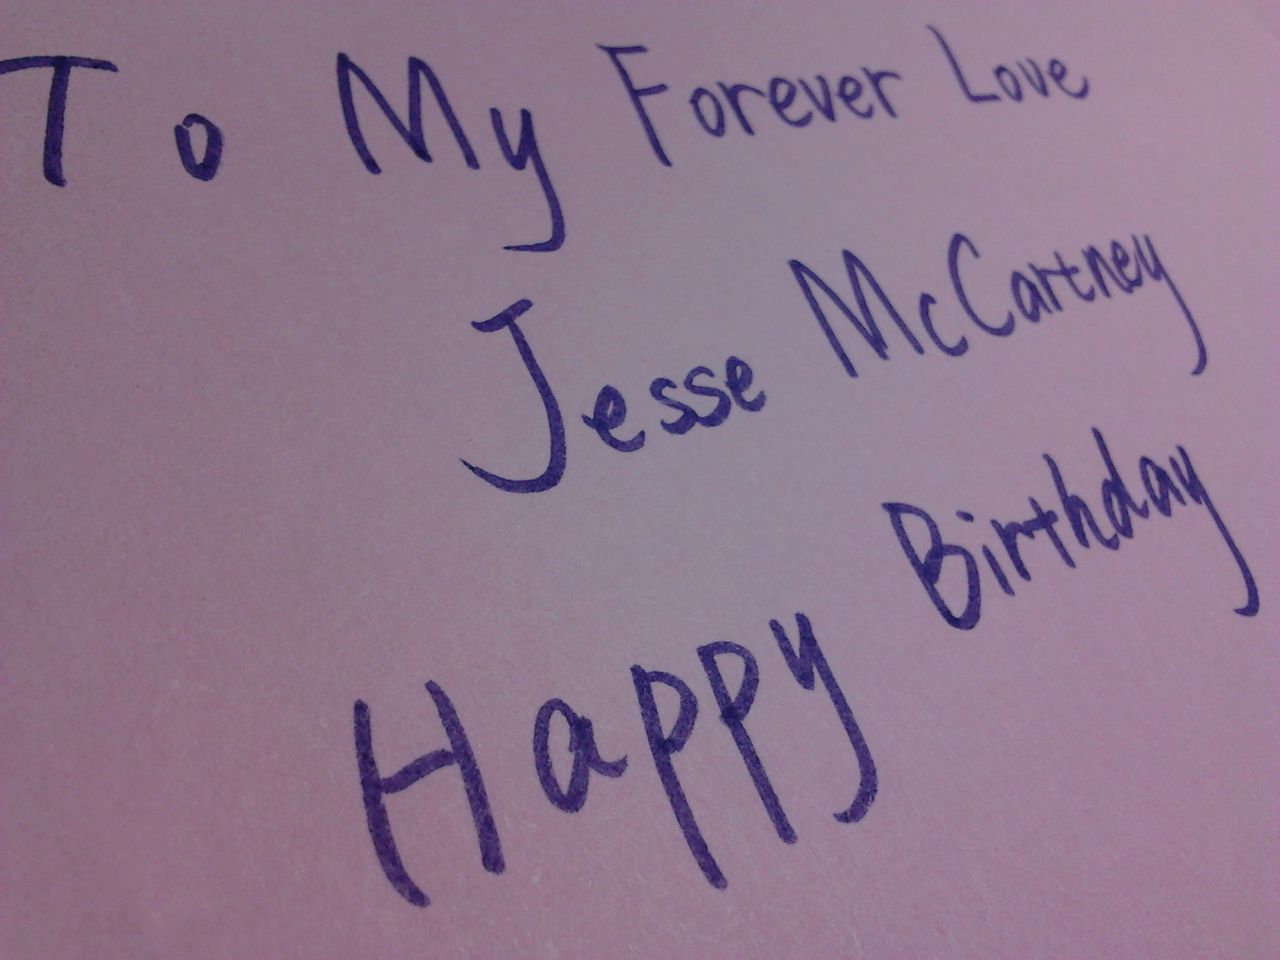 To My Forever Love
Jesse McCartney
Happy Birthday